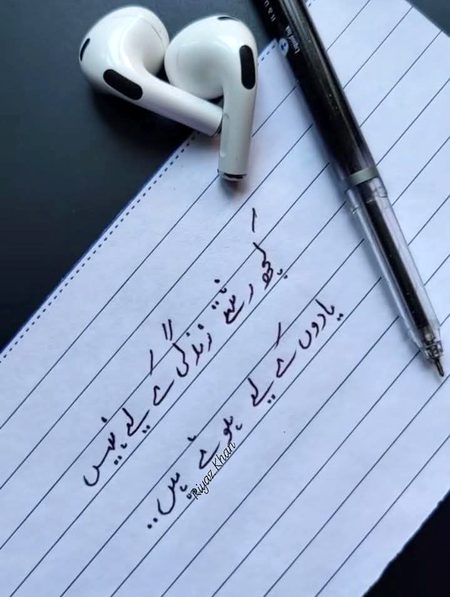 کچھ رشتے زندگی کے لیے نہیں
یادوں کے لیے ہوتے ہیں..
Riyaz Khan